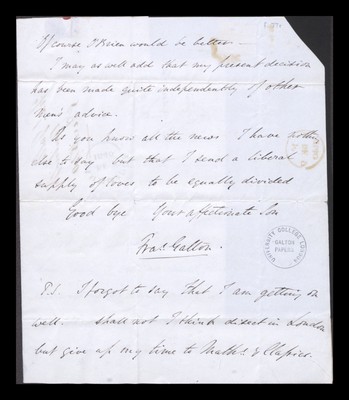 Of course O'Brien would be better –
I may as well add that my present decision
has been made quite independently of other
men's advice.
As you know all the news I have nothing
else to say but that I send a liberal
supply of loves to be equally divided
Good bye Your affectionate Son
Fras. Galton.
UNIVERSITY COLLEGE LONDON
GALTON
PAPERS
P.S. I forgot to say that I am getting on
well. shall not I think dissect in London
but give up my time to Maths. & Classics.